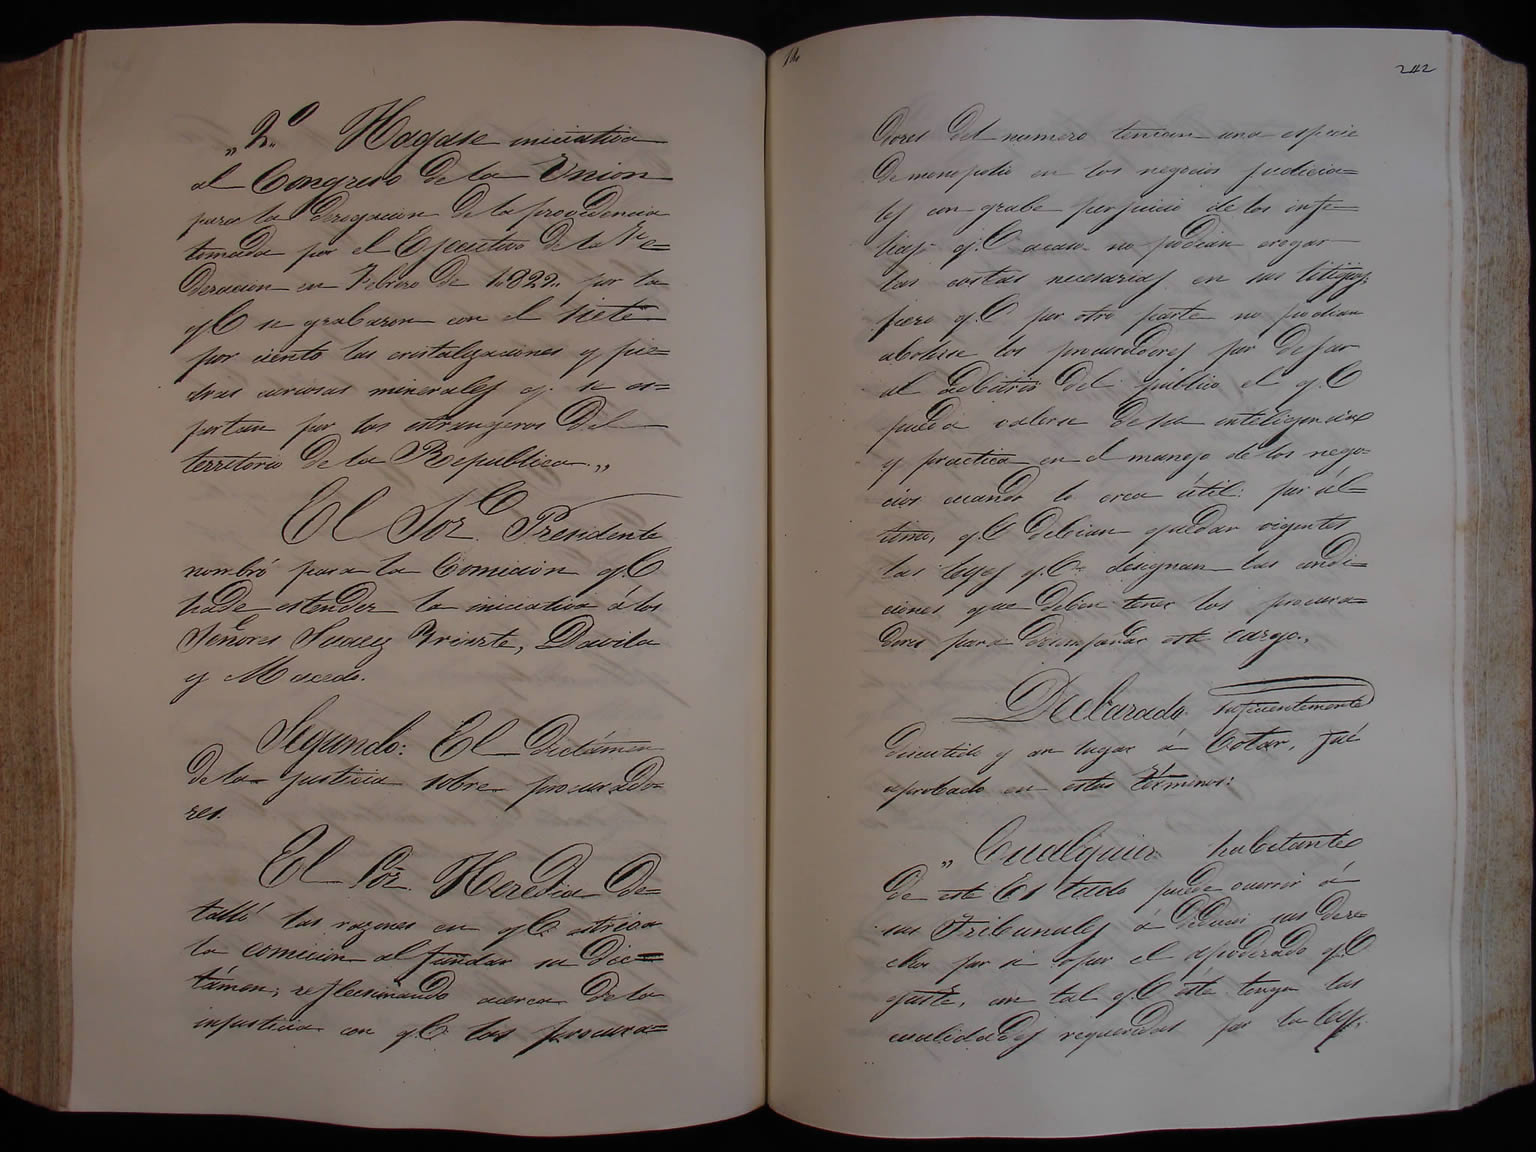 „2.º Hagase iniciativa
al Congreso de la Union
para la derogacion de la providencia
tomada por el Ejecutivo de la Fe=
deracion en Febrero de 1822., por la
q.e se grabaron con el siete
por ciento las cristalizaciones y pie=
dras curiosas minerales q. se es=
portan por los estrangeros del
territorio de la Republica.„
El Sór. Presidente
nombró para la Comicion q.e
ha de estender la iniciativa á los
Señores Suarez Yriarte, Davila
y Macedo.
Segundo: El dictámen
de la justicia sobre procurado=
res.
El Sór. Heredia de=
talló las razones en q.e estriva
la comicion al fundar su dic=
támen; reflecsionando acerca de la
injusticia con q.e los procura=
242
dores del numero tenian una especie
de monopolio en los negocios judicia=
les con grabe perjuicio de los infe=
lices q.e acaso no podian erogar
las costas necesarias en sus litijios;
pero q.e por otra parte no podian
abolirse los procuradores por dejar
al adbitrio del público el q.e
pueda valerse de su inteligencia
y practica en el manejo de los nego=
cios cuando lo crea útil: por úl=
timo, q.e debian quedar vigentes
las leyes q.e designan las condi=
ciones que deben tener los procura=
dores para desempeñar este cargo.
Declarado suficientemente
discutido y con lugar á votar, fué
aprobado en estos términos:
„Cualquier habitante
de este Estado puede ocurrir á
sus Tribunales á deducir sus dere=
chos por si ó por el apoderado q.e
guste, con tal q.e éste tenga las
cualidades requeridas por la ley.